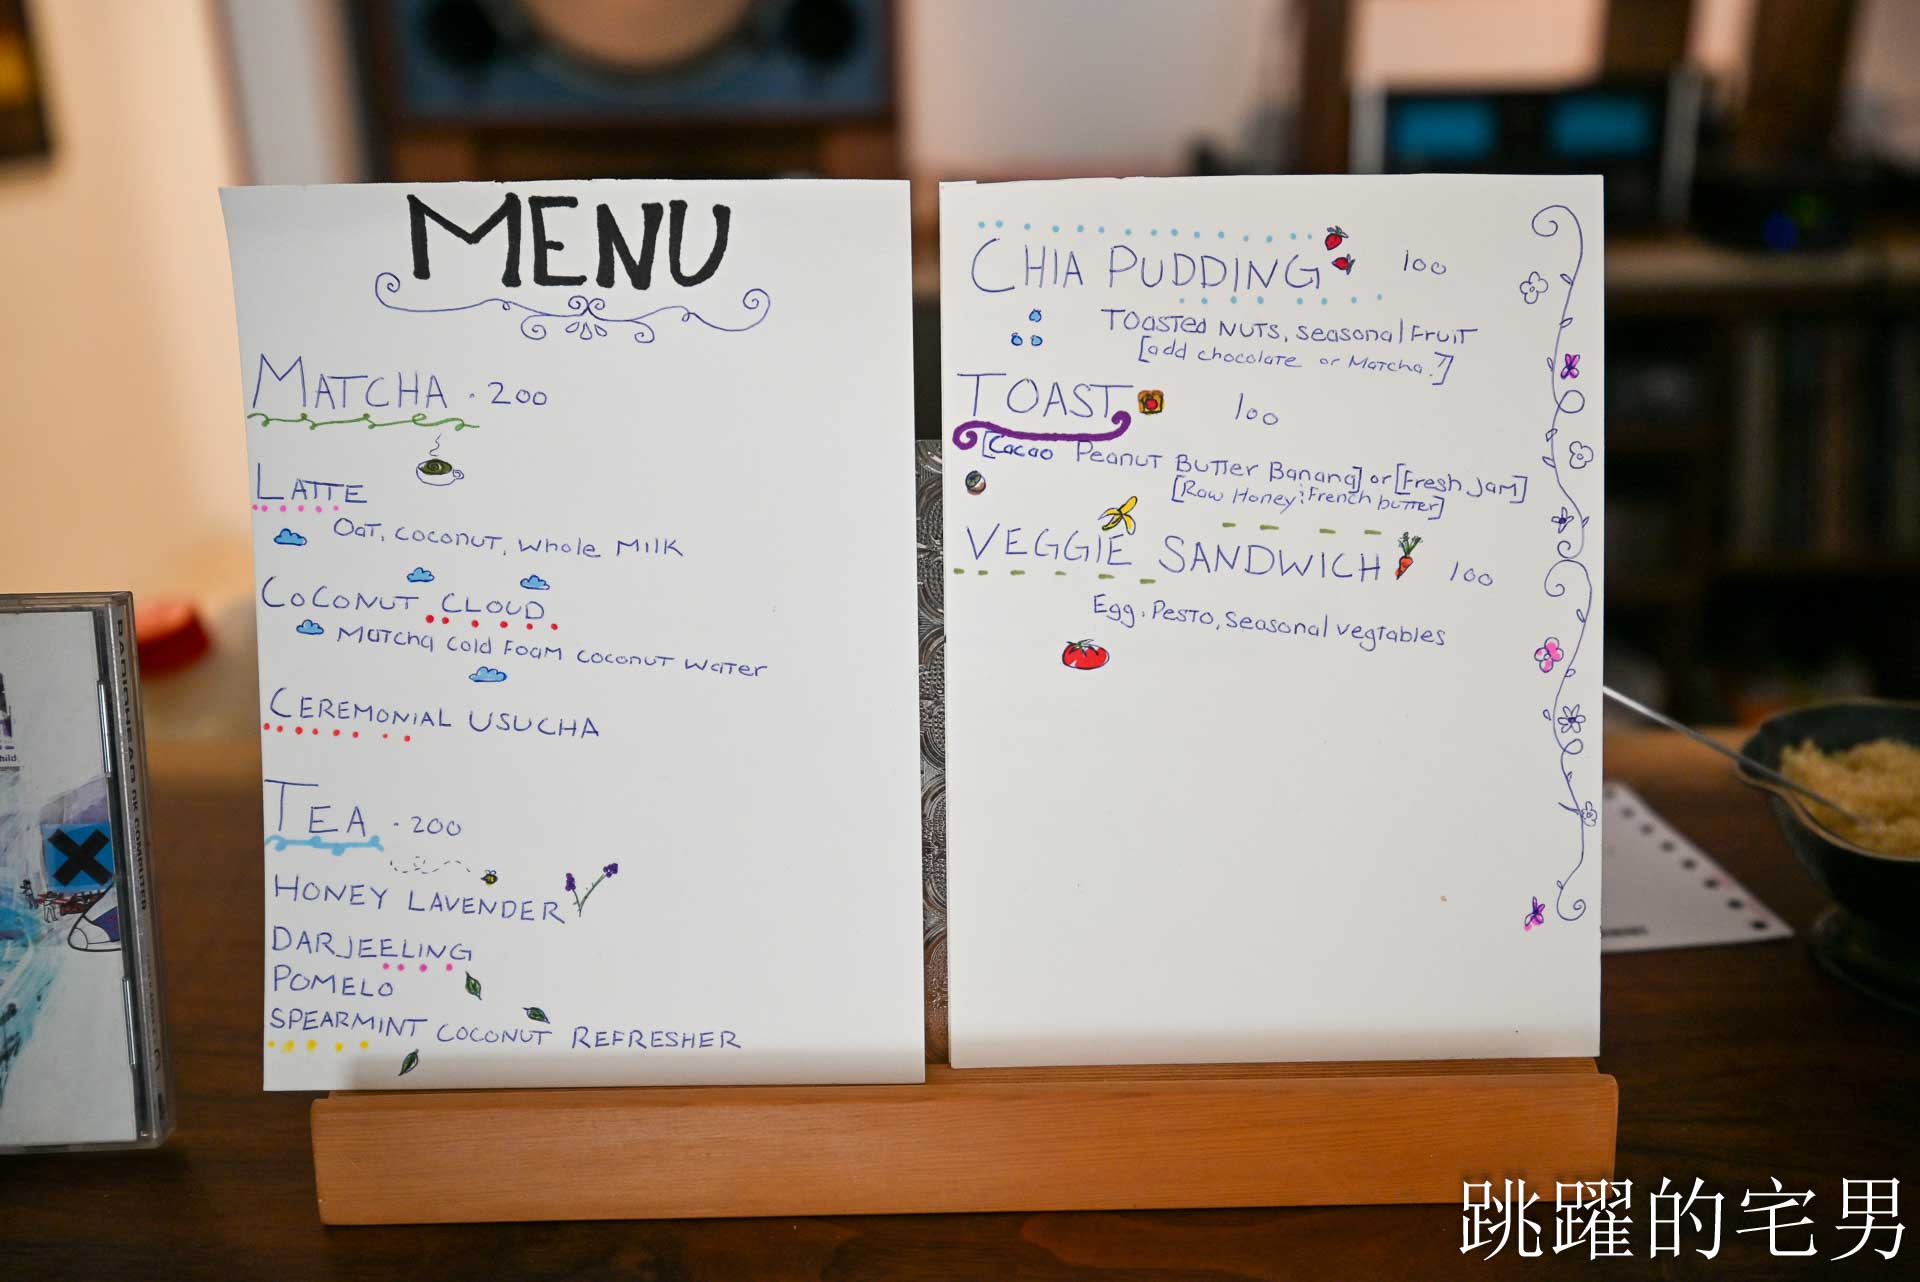 MENU
MATCHA . 200
LATTE
Oat, coconut, whole Milk
COCONUT CLOUD
Matcha Cold Foam Coconut Water
CEREMONIAL USUCHA
TEA . 200
HONEY LAVENDER
DARJEELING
POMELO
SPEARMINT COCONUT REFRESHER
CHIA PUDDING 100
Toasted Nuts, seasonal Fruit
[add chocolate or Matcha?]
TOAST 100
[Cacao Peanut Butter Banana] or [Fresh Jam]
[Raw Honey & French butter]
VEGGIE SANDWICH 100
Egg, Pesto, seasonal vegtables
RADIOHEAD OK COMPUTER
hild
跳躍的宅男